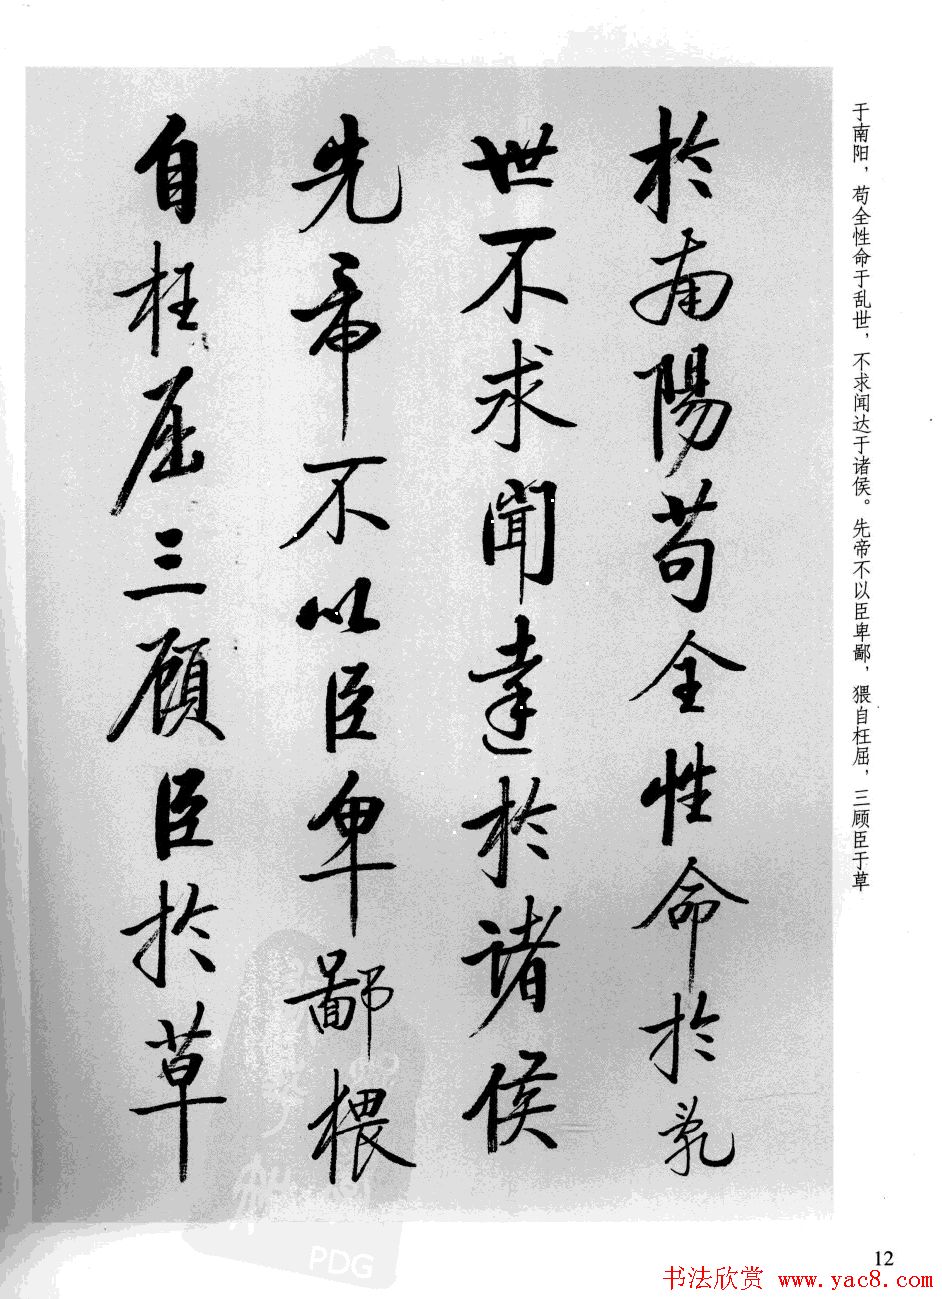 于南阳，苟全性命于乱世，不求闻达于诸侯。先帝不以臣卑鄙，猥自枉屈，三顾臣于草
於南陽苟全性命於乱
世不求聞達於諸侯
先帝不以臣卑鄙猥
自枉屈三顧臣於草
PDG
12
书法欣赏 www.yac8.com